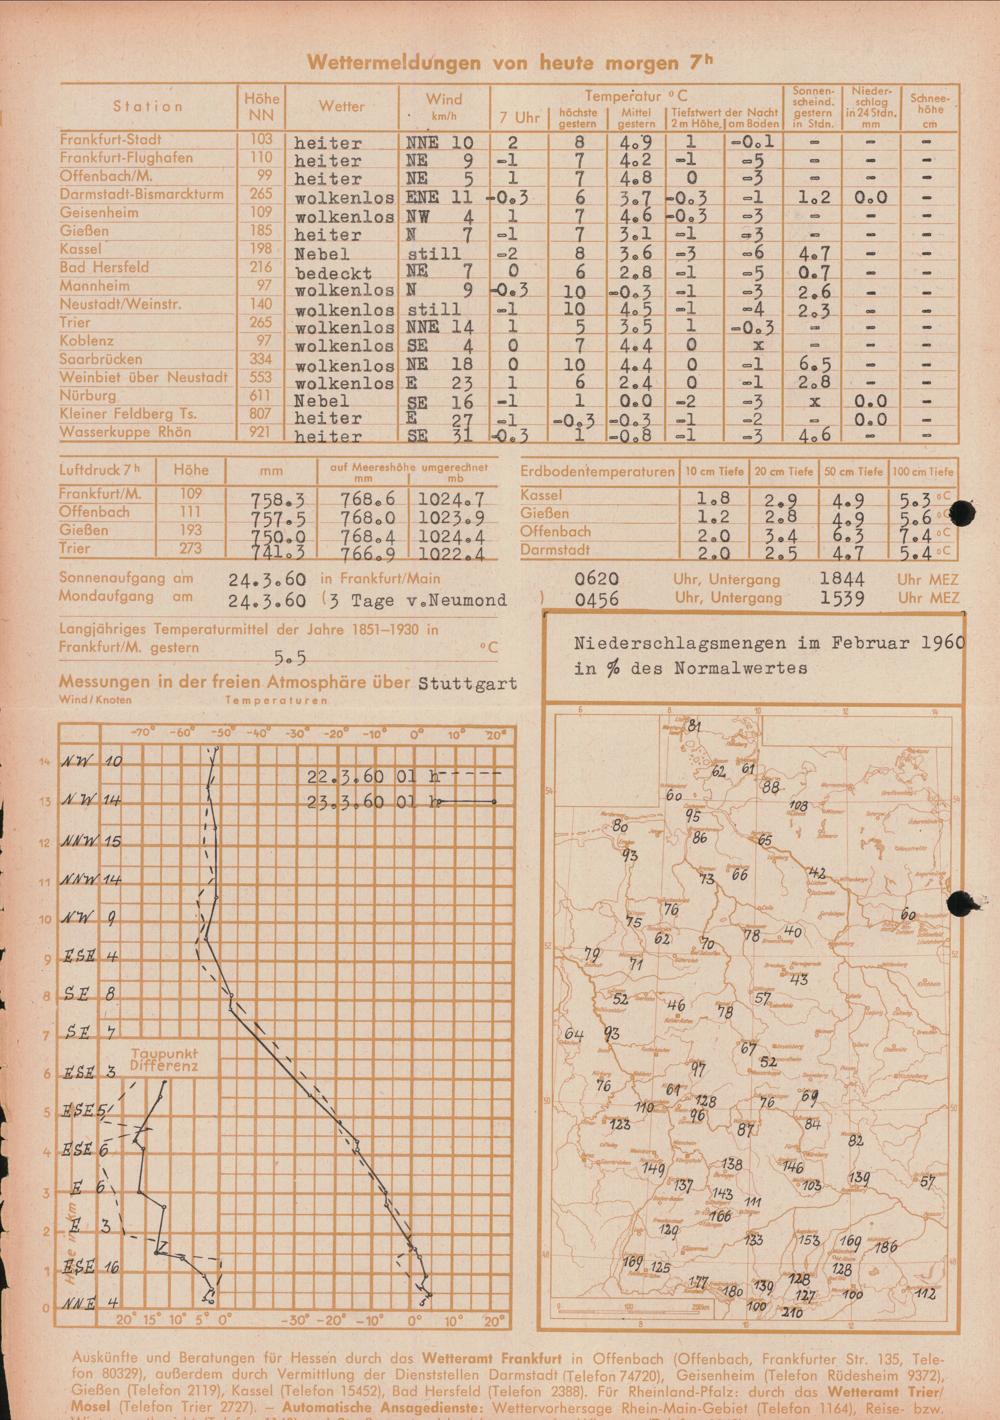 Wettermeldungen von heute morgen 7ʰ
Station Höhe NN Wetter Wind km/h Temperatur °C Sonnenscheind. gestern in Stdn. Niederschlag in 24 Stdn. mm Schneehöhe cm
7 Uhr höchste gestern Mittel gestern Tiefstwert der Nacht 2 m Höhe, am Boden
Frankfurt-Stadt 103 heiter NNE 10 2 8 4.9 1 -0.1 - - -
Frankfurt-Flughafen 110 heiter NE 9 -1 7 4.2 -1 -5 - - -
Offenbach/M. 99 heiter NE 5 1 7 4.8 0 -3 - - -
Darmstadt-Bismarckturm 265 wolkenlos ENE 11 -0.3 6 3.7 -0.3 -1 1.2 0.0 -
Geisenheim 109 wolkenlos NW 4 1 7 4.6 -0.3 -3 - - -
Gießen 185 heiter N 7 -1 7 3.1 -1 -3 - - -
Kassel 198 Nebel still -2 8 3.6 -3 -6 4.7 - -
Bad Hersfeld 216 bedeckt NE 7 0 6 2.8 -1 -5 0.7 - -
Mannheim 97 wolkenlos N 9 -0.3 10 -0.3 -1 -3 2.6 - -
Neustadt/Weinstr. 140 wolkenlos still -1 10 4.5 -1 -4 2.3 - -
Trier 265 wolkenlos NNE 14 1 5 3.5 1 -0.3 - - -
Koblenz 97 wolkenlos SE 4 0 7 4.4 0 x - - -
Saarbrücken 334 wolkenlos NE 18 0 10 4.4 0 -1 6.5 - -
Weinbiet über Neustadt 553 wolkenlos E 23 1 6 2.4 0 -1 2.8 - -
Nürburg 611 Nebel SE 16 -1 1 0.0 -2 -3 x 0.0 -
Kleiner Feldberg Ts. 807 heiter E 27 -1 -0.3 -0.3 -1 -2 - 0.0 -
Wasserkuppe Rhön 921 heiter SE 31 -0.3 1 -0.8 -1 -3 4.6 - -
Luftdruck 7ʰ Höhe mm auf Meereshöhe umgerechnet mm mb
Frankfurt/M. 109 758.3 768.6 1024.7
Offenbach 111 757.5 768.0 1023.9
Gießen 193 750.0 768.4 1024.4
Trier 273 741.3 766.9 1022.4
Erdbodentemperaturen 10 cm Tiefe 20 cm Tiefe 50 cm Tiefe 100 cm Tiefe
Kassel 1.8 2.9 4.9 5.3 °C
Gießen 1.2 2.8 4.9 5.6 °C
Offenbach 2.0 3.4 6.3 7.4 °C
Darmstadt 2.0 2.5 4.7 5.4 °C
Sonnenaufgang am 24.3.60 in Frankfurt/Main 0620 Uhr, Untergang 1844 Uhr MEZ
Mondaufgang am 24.3.60 (3 Tage v.Neumond ) 0456 Uhr, Untergang 1539 Uhr MEZ
Langjähriges Temperaturmittel der Jahre 1851-1930 in
Frankfurt/M. gestern 5.5 °C
Messungen in der freien Atmosphäre über Stuttgart
Wind/Knoten Temperaturen
-70° -60° -50° -40° -30° -20° -10° 0° 10° 20°
22.3.60 01 h
23.3.60 01 h
14 NW 10
13 NW 14
12 NNW 15
11 NNW 14
10 NW 9
9 ESE 4
8 SE 8
7 SE 7
6 ESE 3
5 ESE 5
4 ESE 6
3 E 6
2 E 3
1 ESE 16
0 NNE 4
Taupunkt
Differenz
Höhe in km
20° 15° 10° 5° 0° -30° -20° -10° 0° 10° 20°
Niederschlagsmengen im Februar 1960
in % des Normalwertes
6 8 10 12 14
81
62 61
88
60 108
95
80 86 65
93
73 66 42
76 60
75
62 70 78 40
79 71
43
52 46 78 57
64 93
67 52
97
76 61 69
110 128 76
96
123 87 84
82
149 138 146
137 103 139 57
143 111
166
129
133 153 169 186
169 125 128
177 180 139 128
127 100 112
100
210
Auskünfte und Beratungen für Hessen durch das Wetteramt Frankfurt in Offenbach (Offenbach, Frankfurter Str. 135, Tele-
fon 80329), außerdem durch Vermittlung der Dienststellen Darmstadt (Telefon 74720), Geisenheim (Telefon Rüdesheim 9372),
Gießen (Telefon 2119), Kassel (Telefon 15452), Bad Hersfeld (Telefon 2388). Für Rheinland-Pfalz: durch das Wetteramt Trier/
Mosel (Telefon Trier 2727). – Automatische Ansagedienste: Wettervorhersage Rhein-Main-Gebiet (Telefon 1164), Reise- bzw.